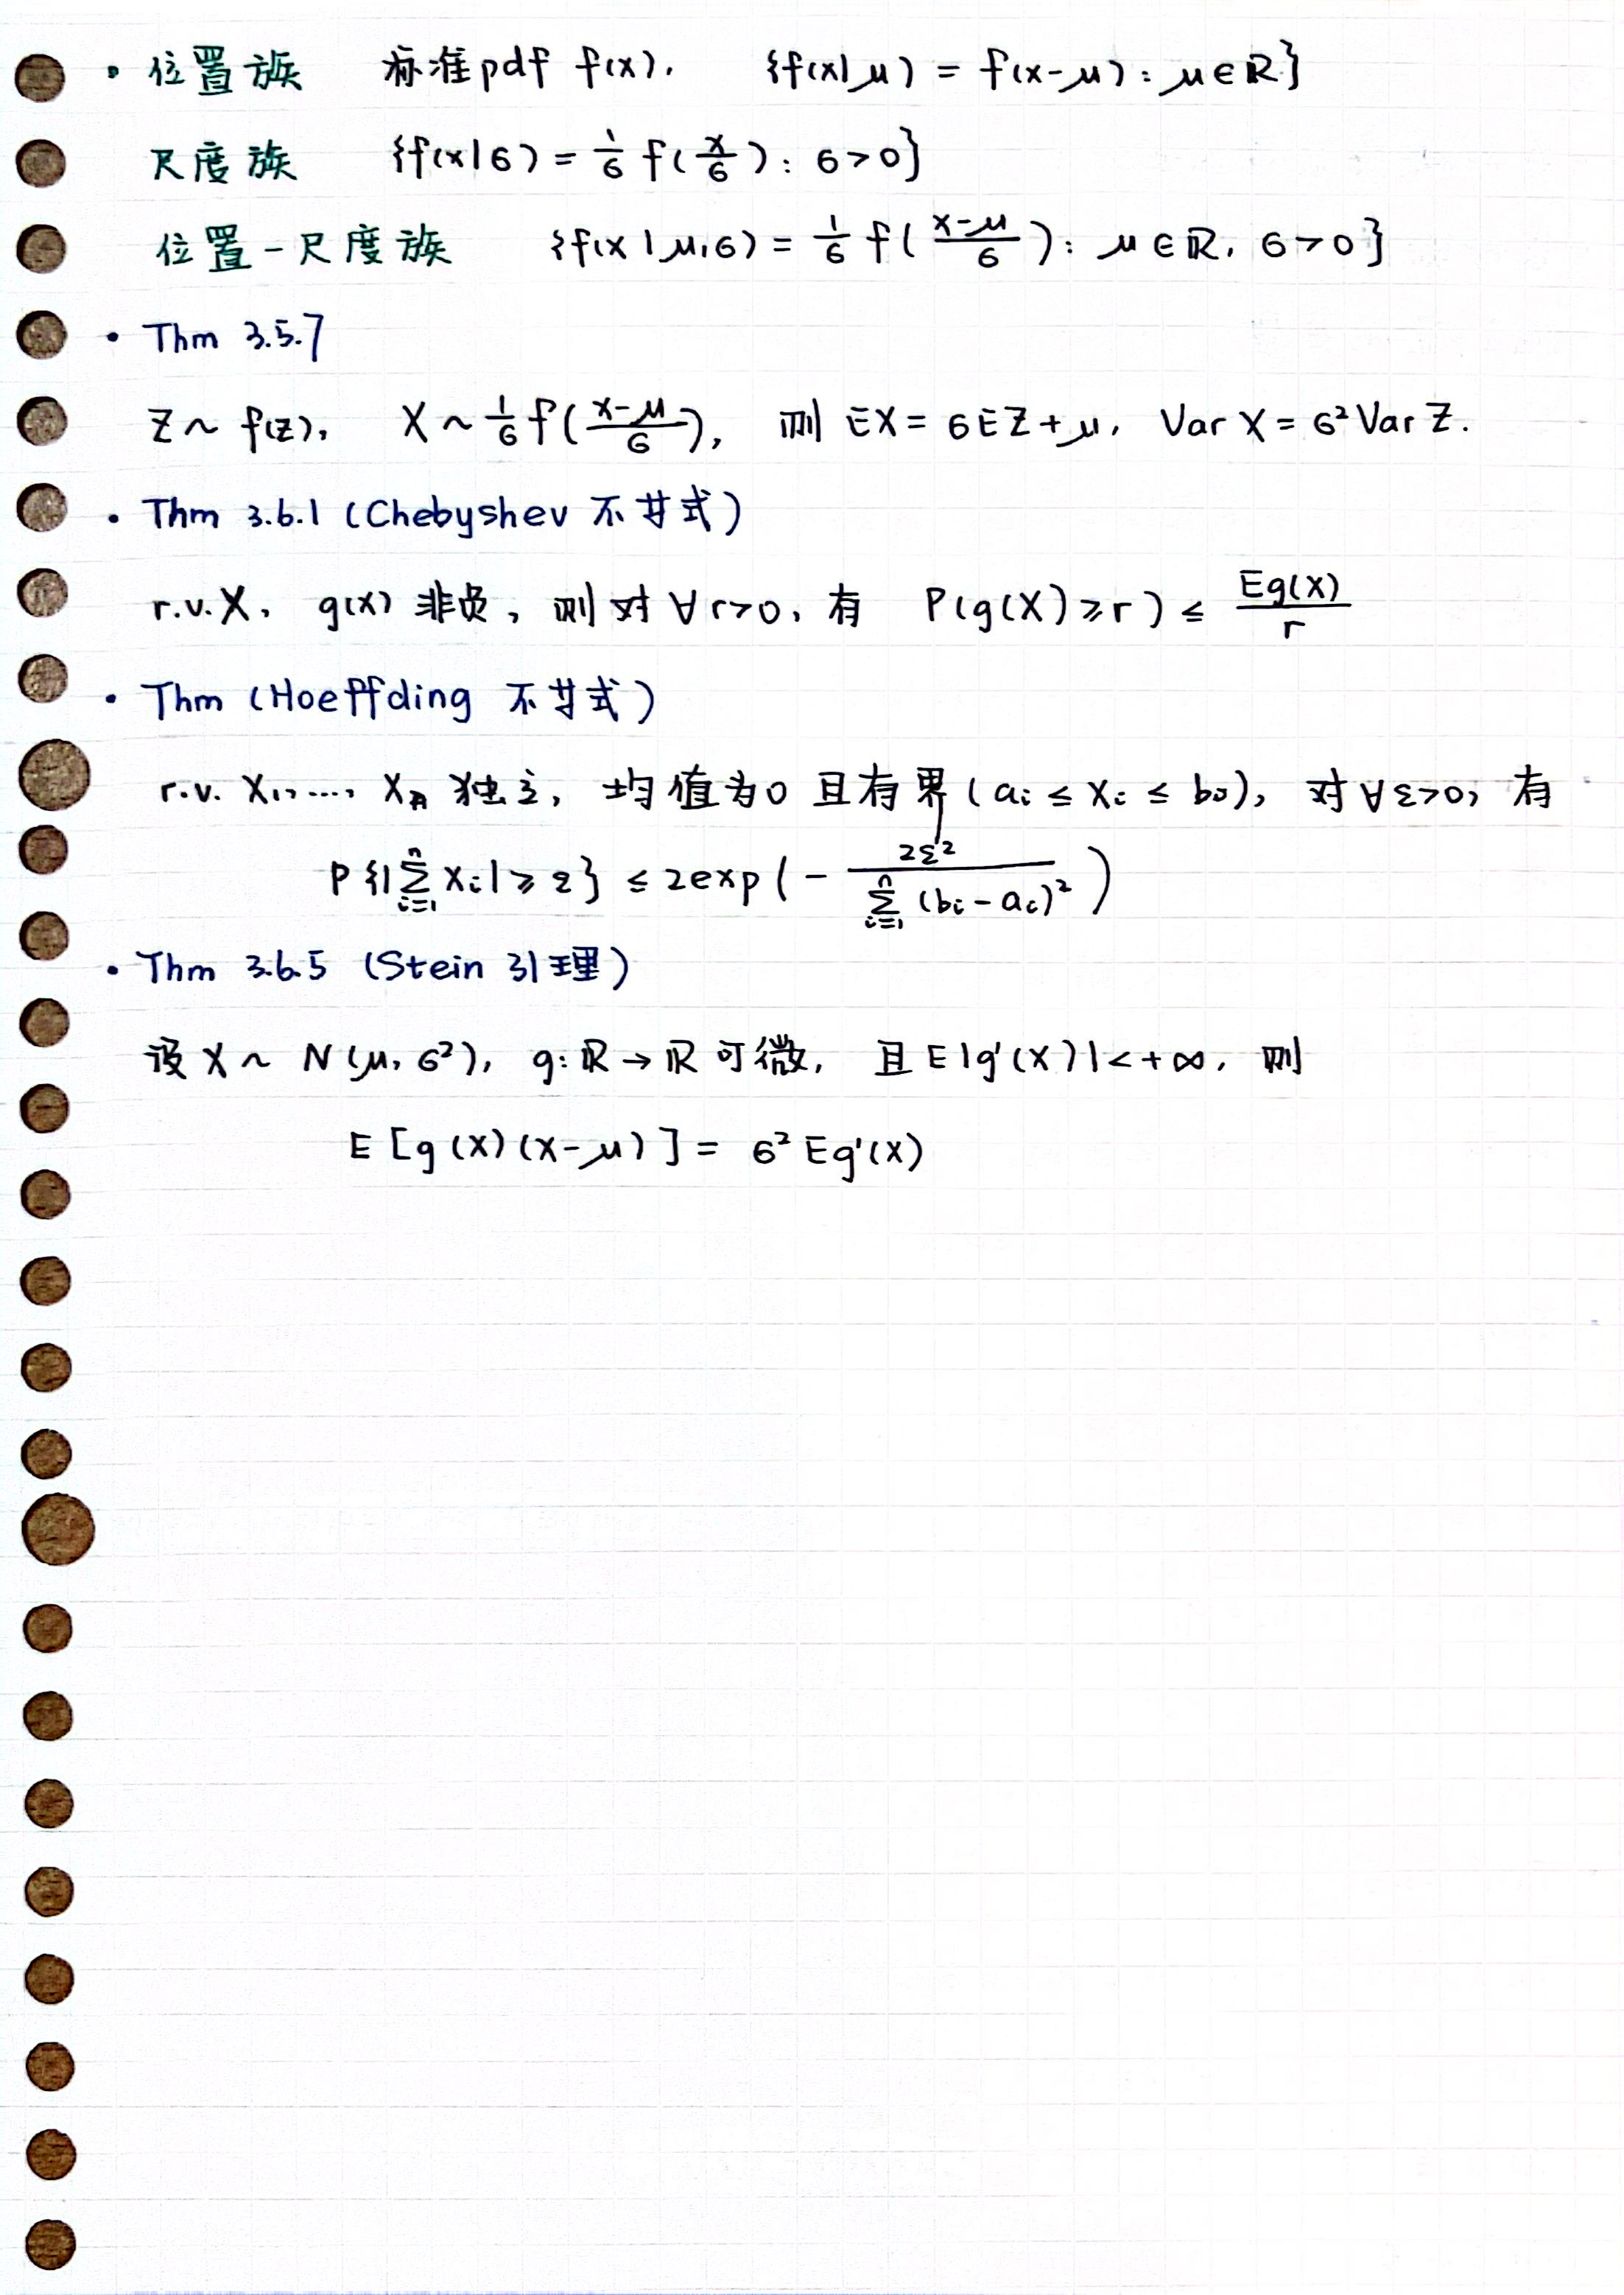 · 位置族 标准pdf f(x). {f(x|μ) = f(x-μ) : μ∈ℝ}
尺度族 {f(x|σ) = 1/σ f(x/σ) : σ>0}
位置-尺度族 {f(x|μ,σ) = 1/σ f((x-μ)/σ) : μ∈ℝ, σ>0}
· Thm 3.5.7
Z ~ f(z), X ~ 1/σ f((x-μ)/σ), 则 EX = σEZ+μ, Var X = σ² Var Z.
· Thm 3.6.1 (Chebyshev 不等式)
r.v. X, g(x) 非负, 则对 ∀r>0, 有 P(g(X)≥r) ≤ Eg(X)/r
· Thm (Hoeffding 不等式)
r.v. X₁,…, Xₙ 独立, 均值为0 且有界 (aᵢ ≤ Xᵢ ≤ bᵢ), 对∀ε>0, 有
P{|∑ᵢ₌₁ⁿ Xᵢ| ≥ ε} ≤ 2exp(- 2ε² / ∑ᵢ₌₁ⁿ (bᵢ-aᵢ)²)
· Thm 3.6.5 (Stein 引理)
设 X ~ N(μ, σ²), g: ℝ→ℝ 可微, 且 E|g'(X)| < +∞, 则
E[g(X)(X-μ)] = σ² Eg'(X)